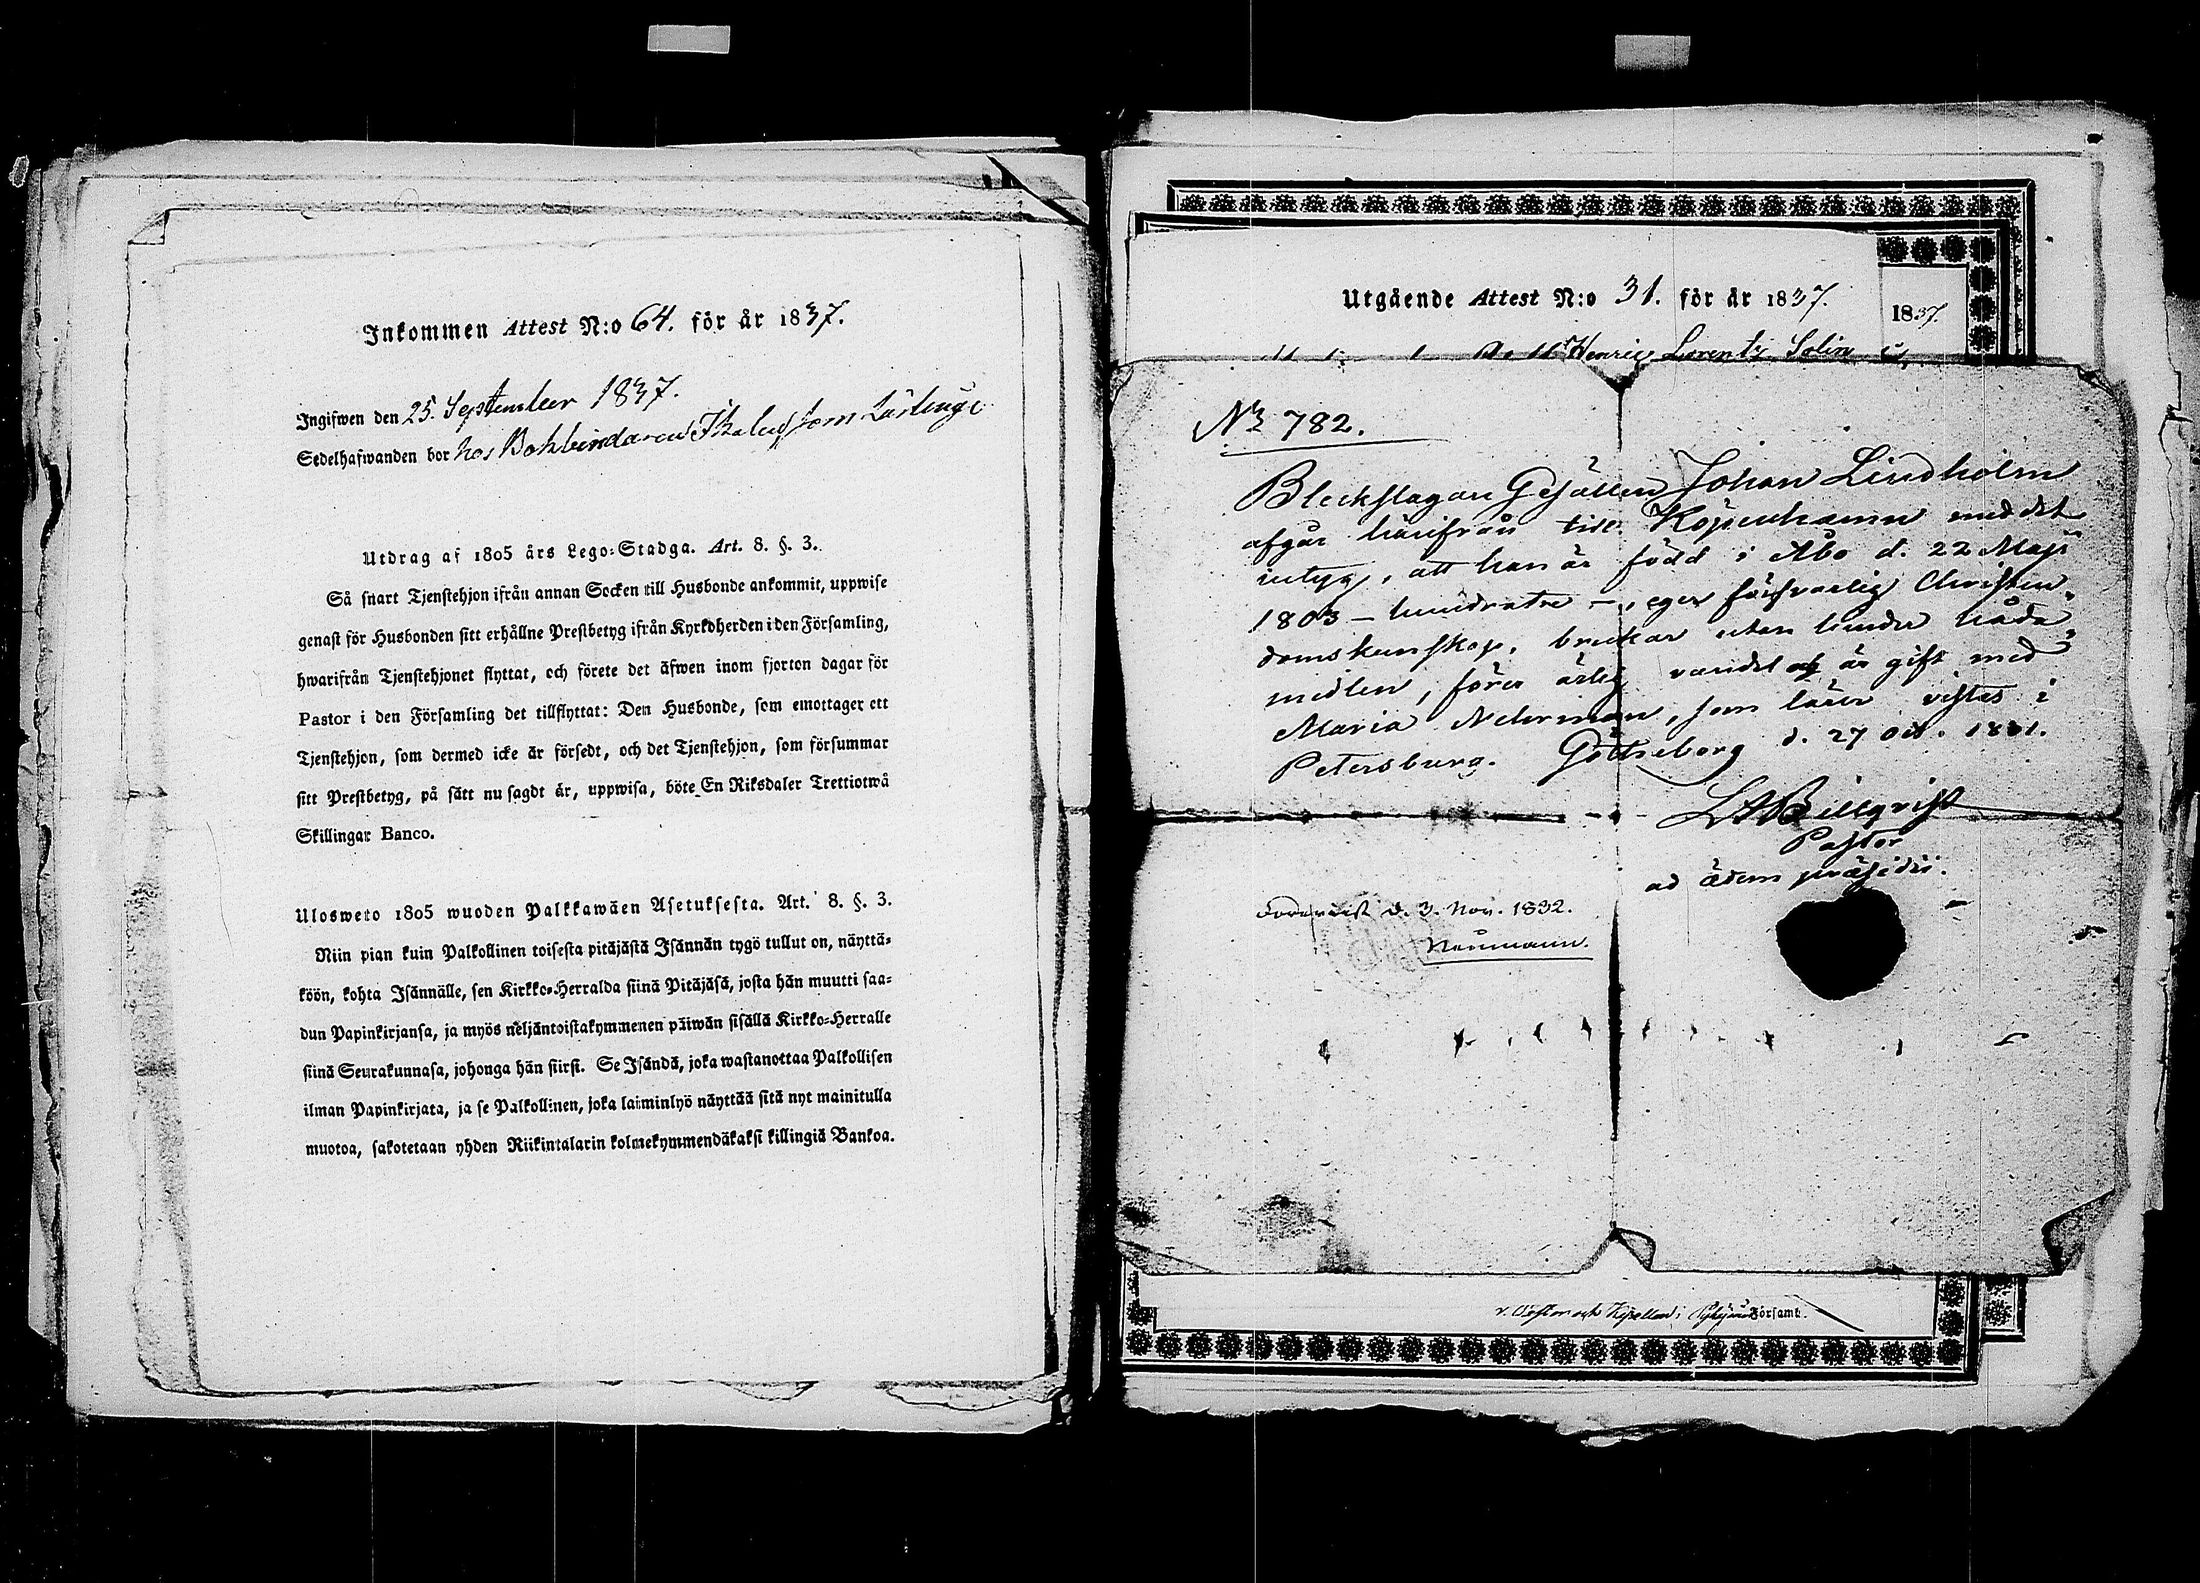 Inkommen Attest N:o 64. för år 1837.
Ingifwen den 25. September 1837.
Sedelhafwanden bor hos Bokbindaren som Lärlinge
Utdrag af 1805 års Lego-Stadga. Art. 8. §. 3.
Så snart Tjenstehjon ifrån annan Socken till Husbonde ankommit, uppwise
genast för Husbonden sitt erhållne Prestbetyg ifrån Kyrkoherden i den Församling,
hwarifrån Tjenstehjonet flyttat, och förete det äfwen inom fjorton dagar för
Pastor i den Församling det tillflyttat: Den Husbonde, som emottager ett
Tjenstehjon, som dermed icke är försedt, och det Tjenstehjon, som försummar
sitt Prestbetyg, på sätt nu sagdt är, uppwisa, böte En Riksdaler Trettiotwå
Skillingar Banco.
Ulosweto 1805 wuoden Palkkawäen Asetuksesta. Art. 8. §. 3.
Niin pian kuin Palkollinen toisesta pitäjästä Isännän tygö tullut on, näyttä-
köön, kohta Isännälle, sen Kirkko-Herralda siinä Pitäjäsä, josta hän muutti saa-
dun Papinkirjansa, ja myös neljäntoistakymmenen päiwän sisällä Kirkko-Herralle
siinä Seurakunnasa, johonga hän siirsi. Se Isändä, joka wastanottaa Palkollisen
ilman Papinkirjata, ja se Palkollinen, joka laiminlyö näyttää sitä nyt mainitulla
muotoa, sakotetaan yhden Riikintalarin kolmekymmendäkaksi killingiä Bankoa.
Utgående Attest N:o 31. för år 1837.
1837.
Henric Lorentz Solin
No 782.
Bleckslagare Gesällen Johan Lindholm
afgår härifrån till Köpenhamn med det
intyg, att han är född i Åbo d. 22 Maji
1803 – hundratre –, eger försvarlig Christen-
domskunskap, brukar utan hinder nåda-
medlen, förer ärlig vandel och är gift med
Maria Nehrman, som lärer vistas i
Petersburg. Götheborg d. 27 Oct. 1831.
LABillqvist
Pastor
ad ædem præsidii.
Forevist d. 3. Nov. 1832.
Neumann.
v. Pastor och Kapellan i Församl.